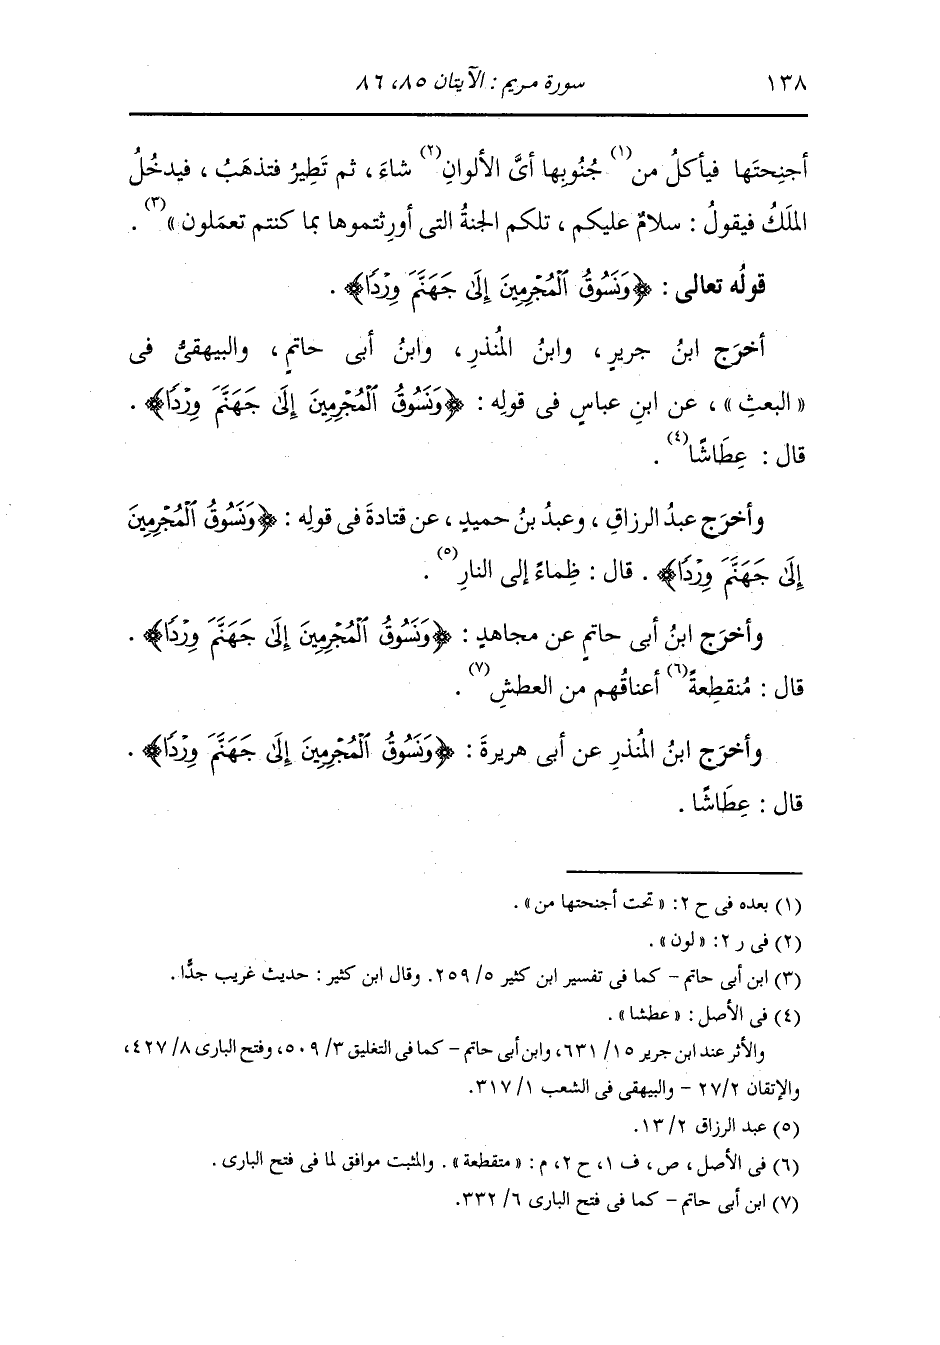 ١٣٨ سورة مريم : الآيتان ٨٥، ٨٦
أجنِحتَها فيأكلُ من(١) جُنُوبِها أىَّ الألوانِ(٢) شاءَ ، ثم تَطِيرُ فتذهَبُ ، فيدخُلُ
الملَكُ فيقولُ : سلامٌ عليكم ، تلكم الجنةُ التى أورِثتموها بما كنتم تعمَلون »(٣) .
قولُه تعالى : ﴿وَنَسُوقُ ٱلْمُجْرِمِينَ إِلَىٰ جَهَنَّمَ وِرْدًا﴾ .
أخرَج ابنُ جريرٍ ، وابنُ المُنذرِ ، وابنُ أبى حاتمٍ ، والبيهقىُّ فى
« البعثِ » ، عن ابنِ عباسٍ فى قولِه : ﴿وَنَسُوقُ ٱلْمُجْرِمِينَ إِلَىٰ جَهَنَّمَ وِرْدًا﴾ .
قال : عِطَاشًا(٤) .
وأخرَج عبدُ الرزاقِ ، وعبدُ بنُ حميدٍ ، عن قتادةَ فى قولِه : ﴿وَنَسُوقُ ٱلْمُجْرِمِينَ
إِلَىٰ جَهَنَّمَ وِرْدًا﴾ . قال : ظِماءً إلى النارِ(٥) .
وأخرَج ابنُ أبى حاتمٍ عن مجاهدٍ : ﴿وَنَسُوقُ ٱلْمُجْرِمِينَ إِلَىٰ جَهَنَّمَ وِرْدًا﴾ .
قال : مُنقطِعةً(٦) أعناقُهم من العطشِ(٧) .
وأخرَج ابنُ المُنذرِ عن أبى هريرةَ : ﴿وَنَسُوقُ ٱلْمُجْرِمِينَ إِلَىٰ جَهَنَّمَ وِرْدًا﴾ .
قال : عِطَاشًا .
(١) بعده فى ح ٢: « تحت أجنحتها من » .
(٢) فى ر ٢: « لون » .
(٣) ابن أبى حاتم - كما فى تفسير ابن كثير ٥/ ٢٥٩. وقال ابن كثير : حديث غريب جدًّا .
(٤) فى الأصل : « عطشا » .
والأثر عند ابن جرير ١٥/ ٦٣١، وابن أبى حاتم - كما فى التغليق ٣/ ٥٠٩، وفتح البارى ٨/ ٤٢٧،
والإتقان ٢/ ٢٧ - والبيهقى فى الشعب ١/ ٣١٧.
(٥) عبد الرزاق ٢/ ١٣.
(٦) فى الأصل ، ص ، ف ١، ح ٢، م : « متقطعة » . والمثبت موافق لما فى فتح البارى .
(٧) ابن أبى حاتم - كما فى فتح البارى ٦/ ٣٣٢.